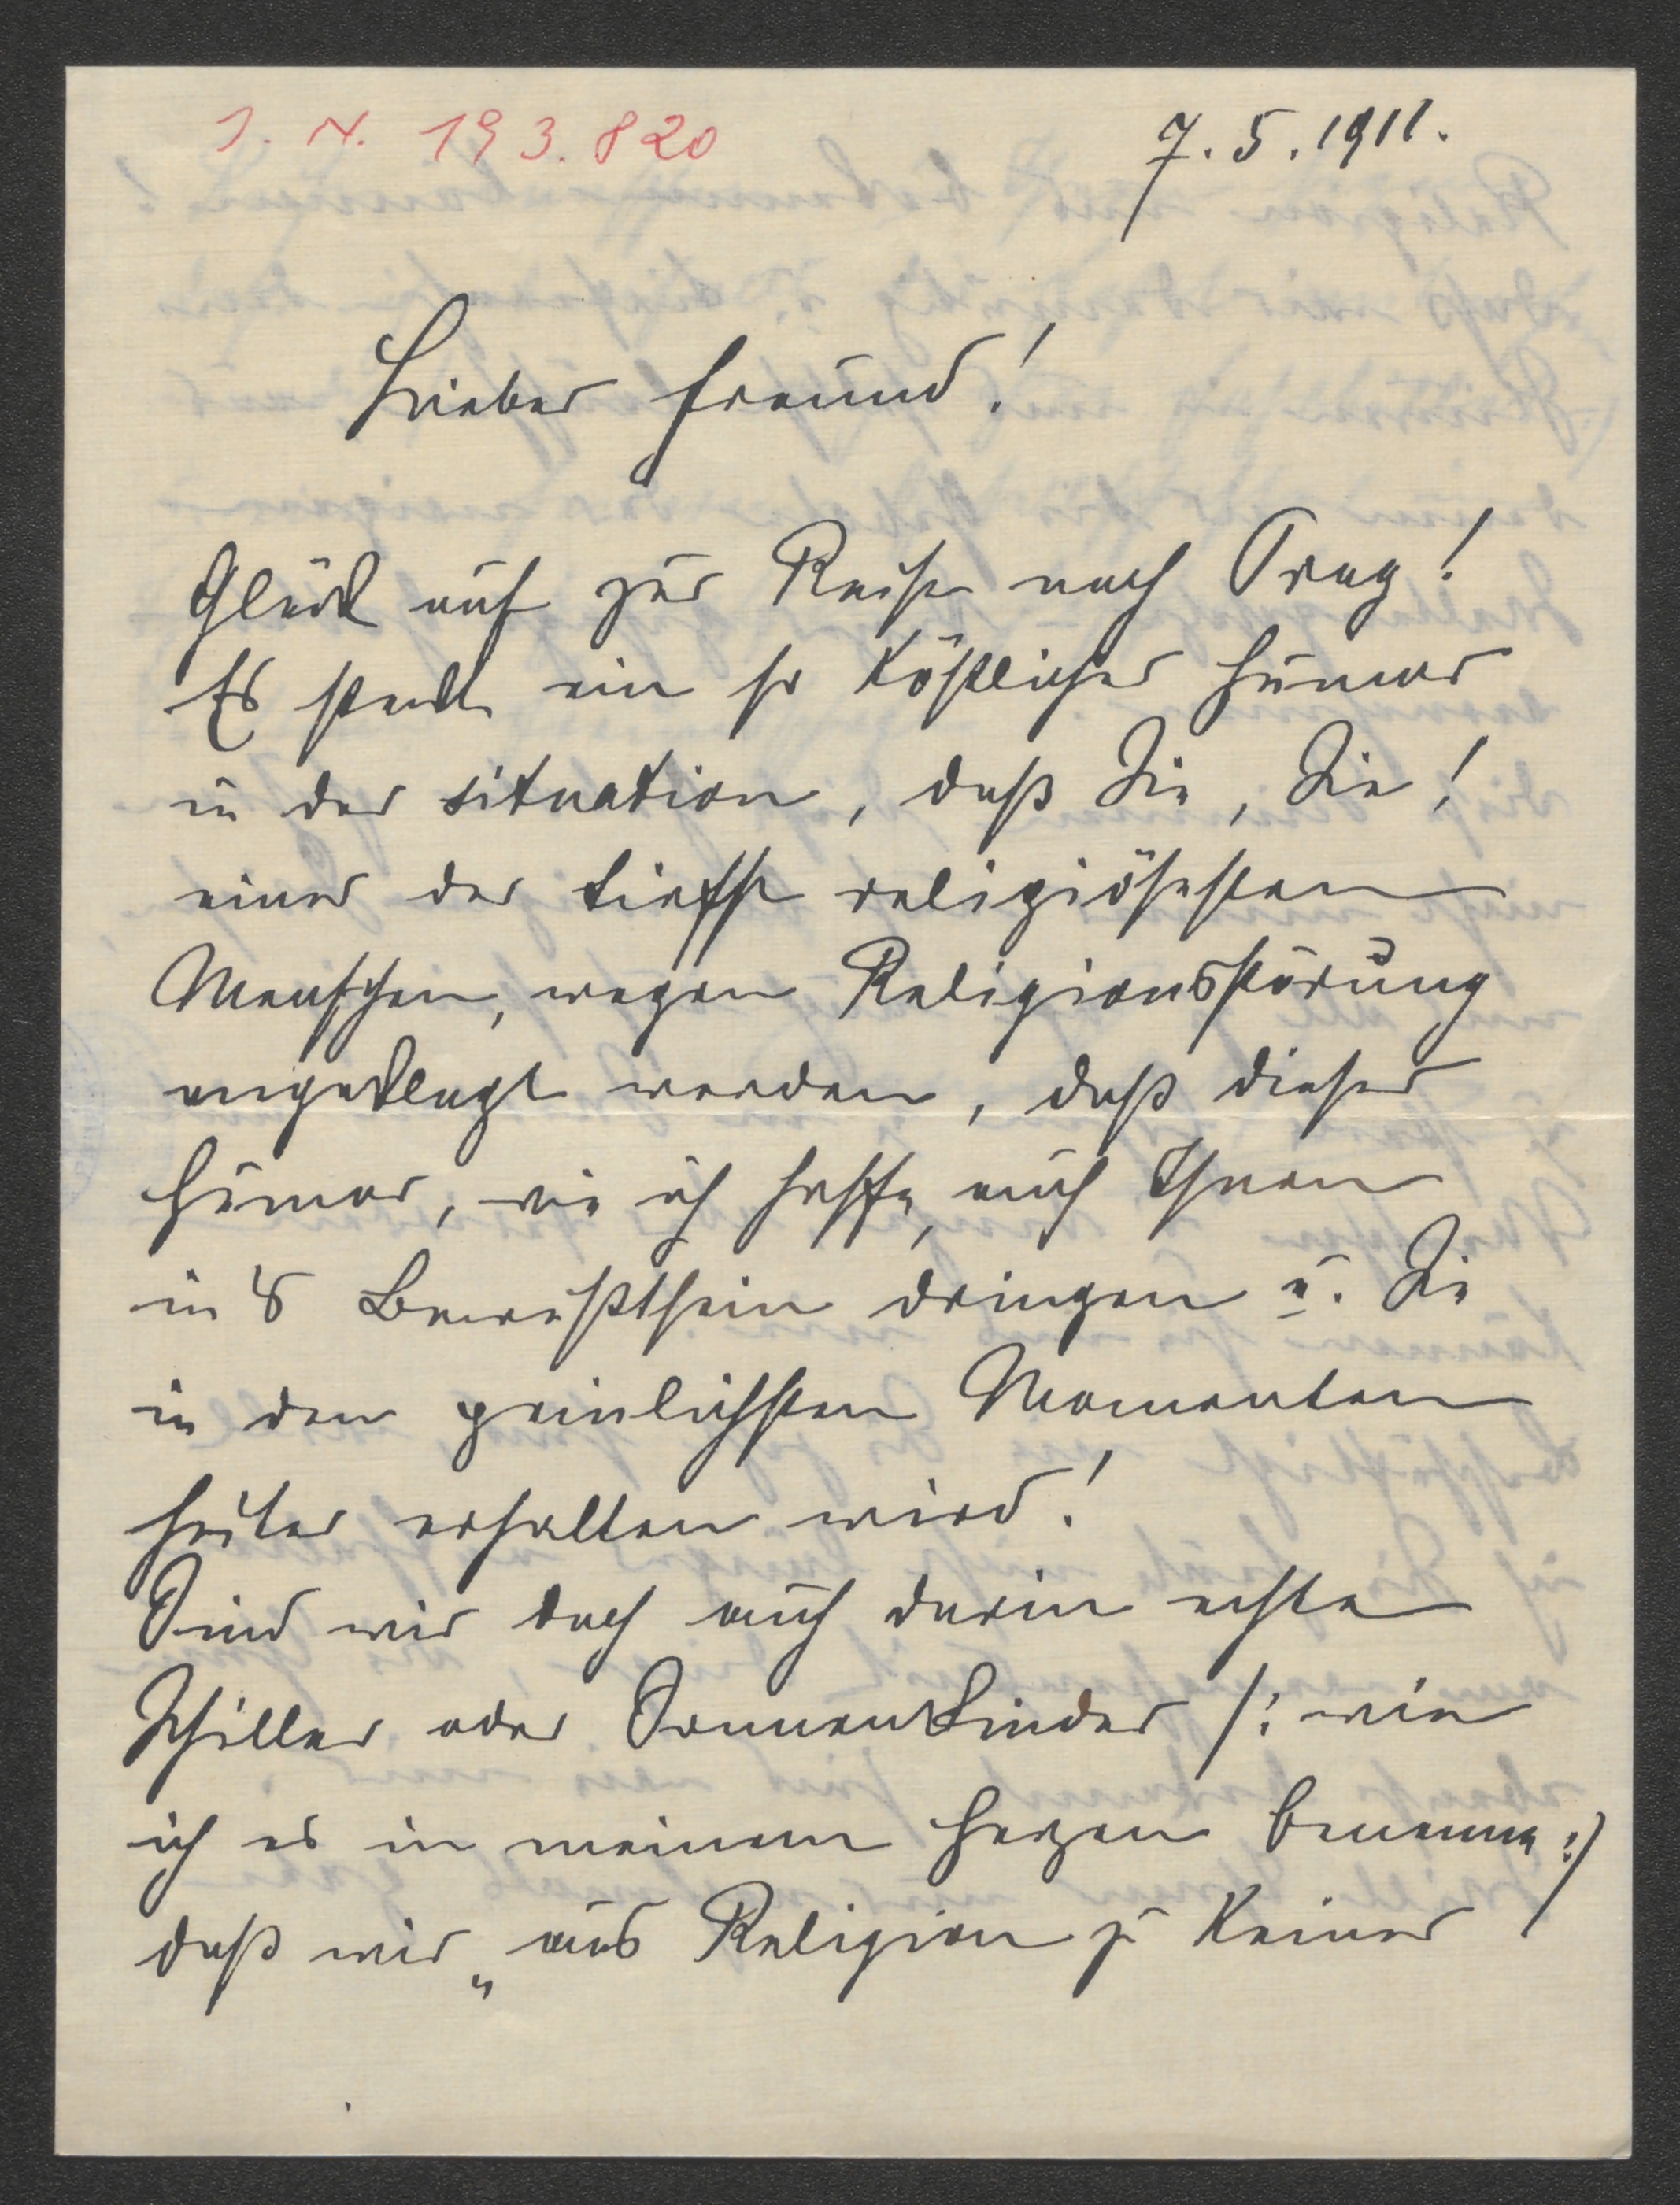 I. N. 193.820
7.5.1911.
Lieber Freund!
Glück auf zur Reise nach Prag!
Es steckt ein so köstlicher Humor
in der situation, daß Sie, Sie!
einer der tiefst religiösesten
Menschen, wegen Religionsstörung
angeklagt werden, daß dieser
Humor, wie ich hoffe, auch Ihnen
in's Bewußtsein dringen u. Sie
in den peinlichsten Momenten
heiter erhalten wird!
Sind wir doch auch darin echte
Schiller oder Sonnenkinder /: wie
ich es in meinem Herzen benenne :/
daß wir „aus Religion zu keiner